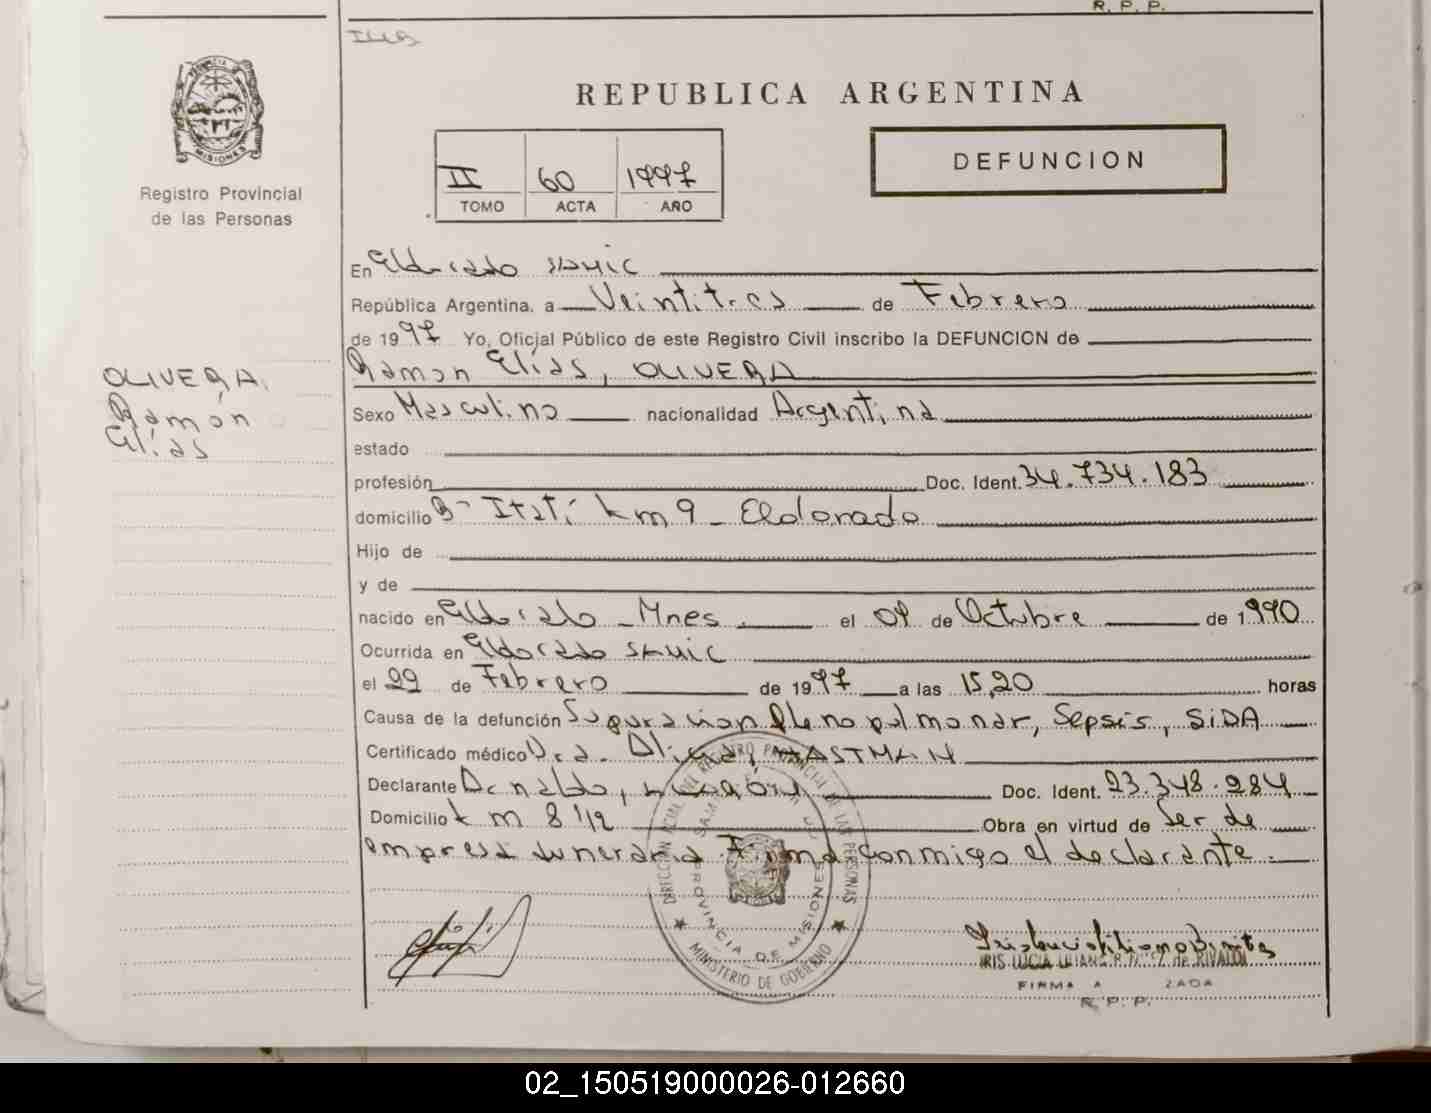 R. P. P.
REPUBLICA ARGENTINA
PROVINCIA
MISIONES
Registro Provincial
de las Personas
II 60 1997
TOMO ACTA AÑO
DEFUNCION
En Eldorado SAMIC
República Argentina, a Veintitres de Febrero
de 1997 Yo, Oficial Público de este Registro Civil inscribo la DEFUNCION de
Ramon Elías, OLIVERA
OLIVERA
Ramón
Elías
Sexo Masculino nacionalidad Argentina
estado
profesión Doc. Ident. 34.734.183
domicilio Bº Itatí km 9 - Eldorado
Hijo de
y de
nacido en Eldorado - Mnes el 09 de Octubre de 1990
Ocurrida en Eldorado SAMIC
el 22 de Febrero de 1997 a las 15,20 horas
Causa de la defunción Supuracion Plenopulmonar, Sepsis, SIDA
Certificado médico Dra. HASTMAN
Declarante Doc. Ident. 23.348.284
Domicilio km 8 1/2 Obra en virtud de Ser de
empresa funeraria. Firma conmigo el declarante.
DIRECCION REGISTRO PROVINCIAL DE LAS PERSONAS
PROVINCIA DE MISIONES
MINISTERIO DE GOBIERNO
IRIS LUCIA LILIANA de RIVALDI
FIRMA A ZADA
R. P. P.
02_150519000026-012660